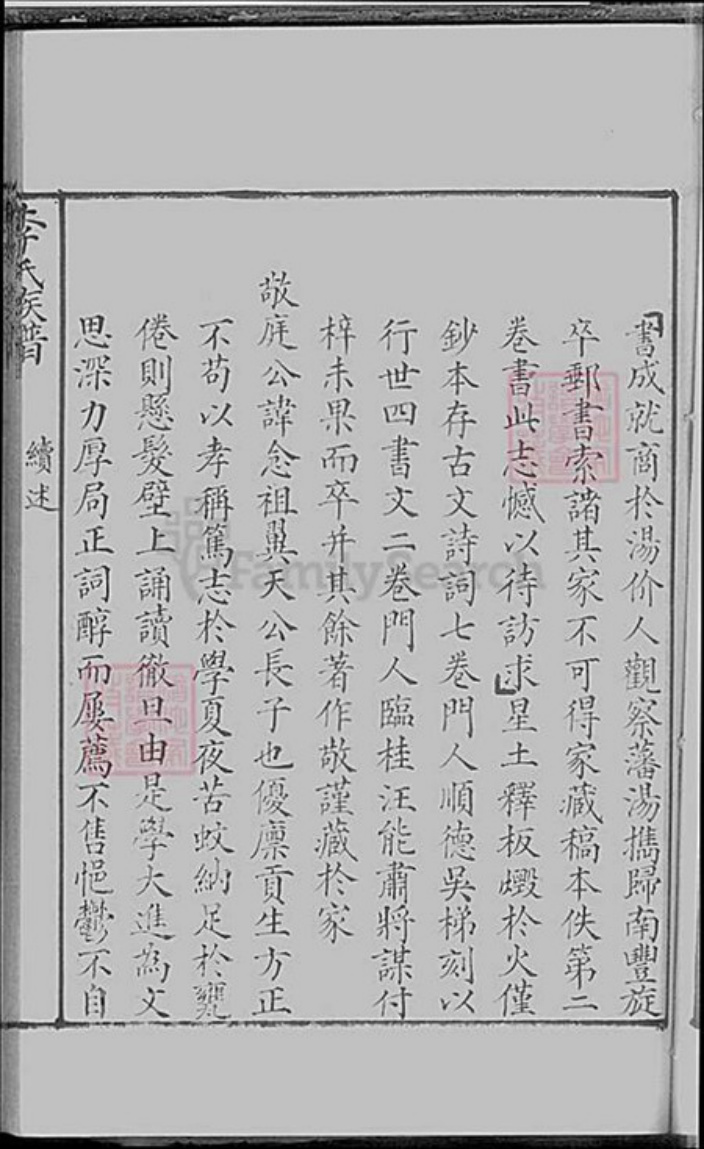 書成就商於湯价人觀察藩湯攜歸南豐旋
卒郵書索諸其家不可得家藏稿本佚第二
卷書此志憾以待訪求星土釋板燬於火僅
鈔本存古文詩詞七卷門人順德吳梯刻以
行世四書文二卷門人臨桂汪能肅將謀付
梓未果而卒并其餘著作敬謹藏於家
敬庭公諱念祖翼天公長子也優廩貢生方正
不苟以孝稱篤志於學夏夜苦蚊納足於甕
倦則懸髮壁上誦讀徹旦由是學大進為文
思深力厚局正詞醇而屢薦不售悒鬱不自
李氏族譜
續述
FamilySearch